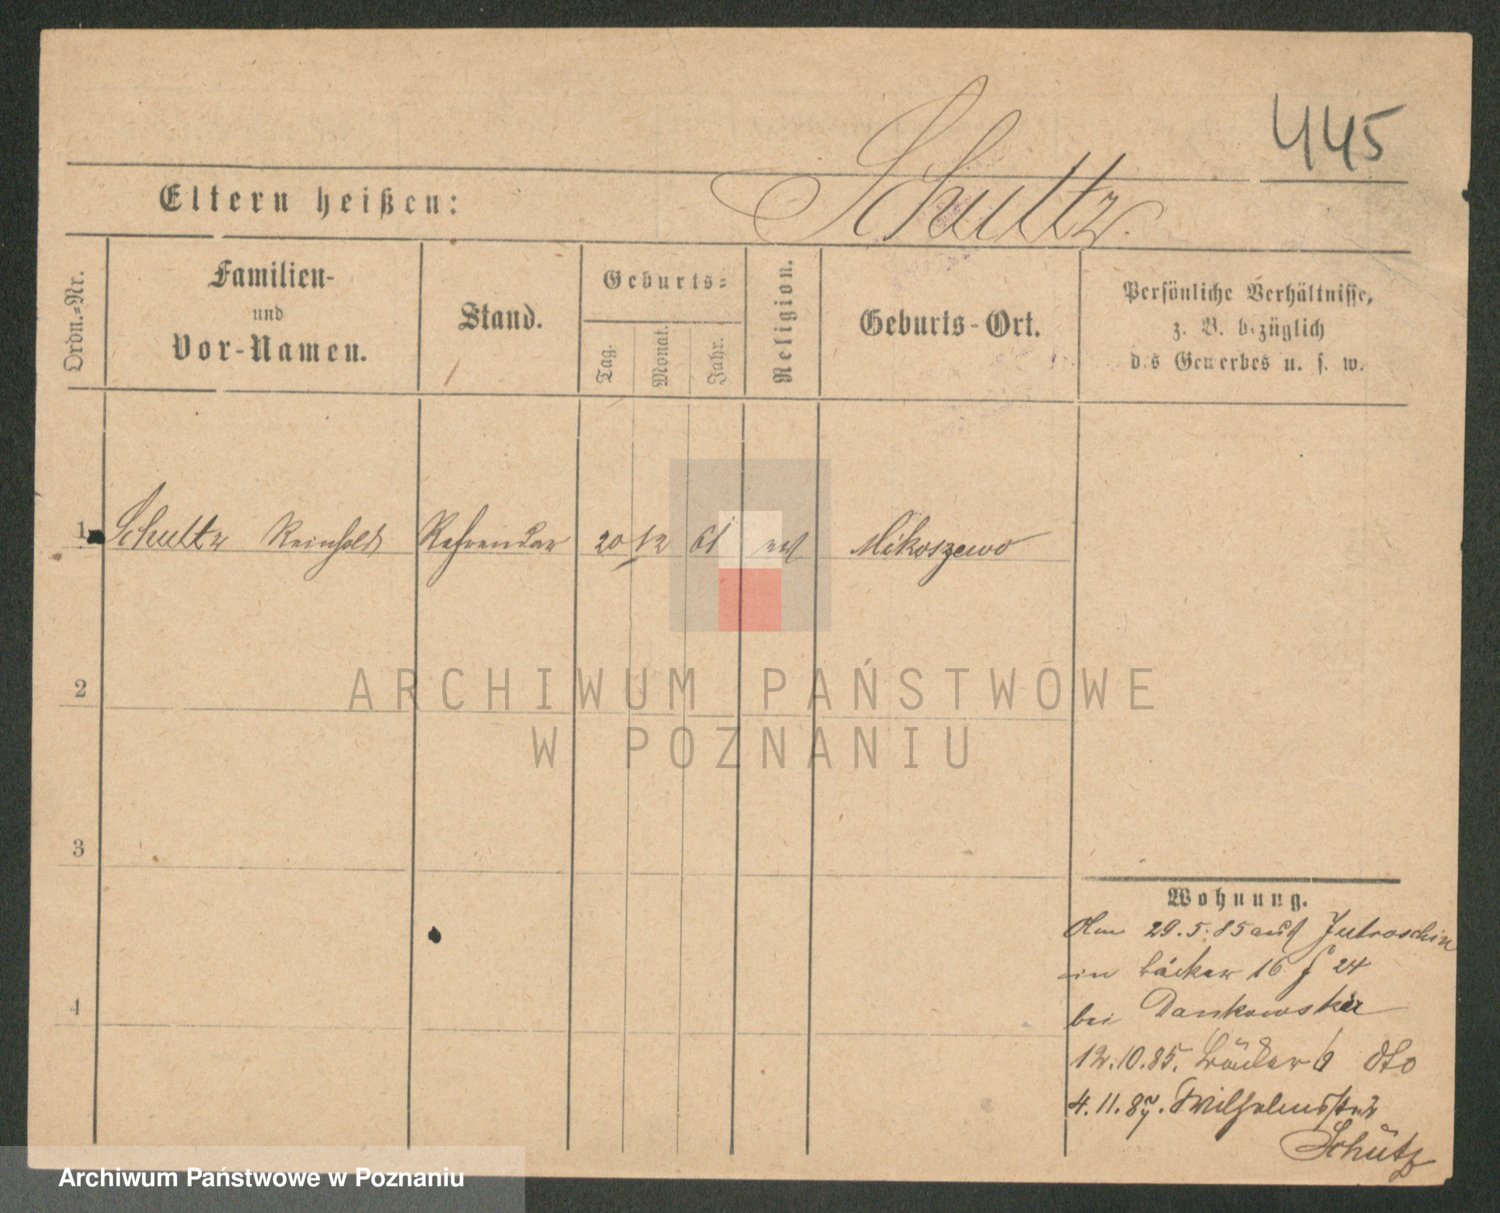 445
Schultz.
Eltern heißen:
Ordn.-Nr.
Familien-
und
Vor-Namen.
Stand.
Geburts-
Tag.
Monat.
Jahr.
Religion.
Geburts-Ort.
Persönliche Verhältnisse,
z. B. bezüglich
des Gewerbes u. s. w.
1 Schultz Reinhold Referendar 20 12 61 Mikoszewo
2
3
4
ARCHIWUM PAŃSTWOWE
W POZNANIU
Wohnung.
Am 29.5.85 aus Jutroschin
in Bäcker 16 24
bei Dankowska
12.10.85. dto
4.11.87. Wilhelmstr
Schütz
Archiwum Państwowe w Poznaniu